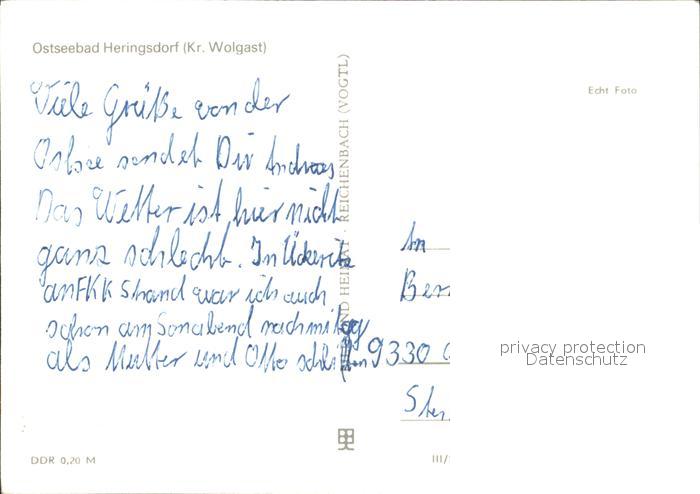 Ostseebad Heringsdorf (Kr. Wolgast)
Echt Foto
Viele Grüße von der
Ostsee sendet Dir Andreas
Das Wetter ist hier nicht
ganz schlecht. In Ückeritz
an FKK Strand war ich auch
schon am Sonabend nachmittag
als Mutter und Otto schliefen
REICHENBACH (VOGTL)
An
Ber
9330
privacy protection
Datenschutz
DDR 0,20 M
III/